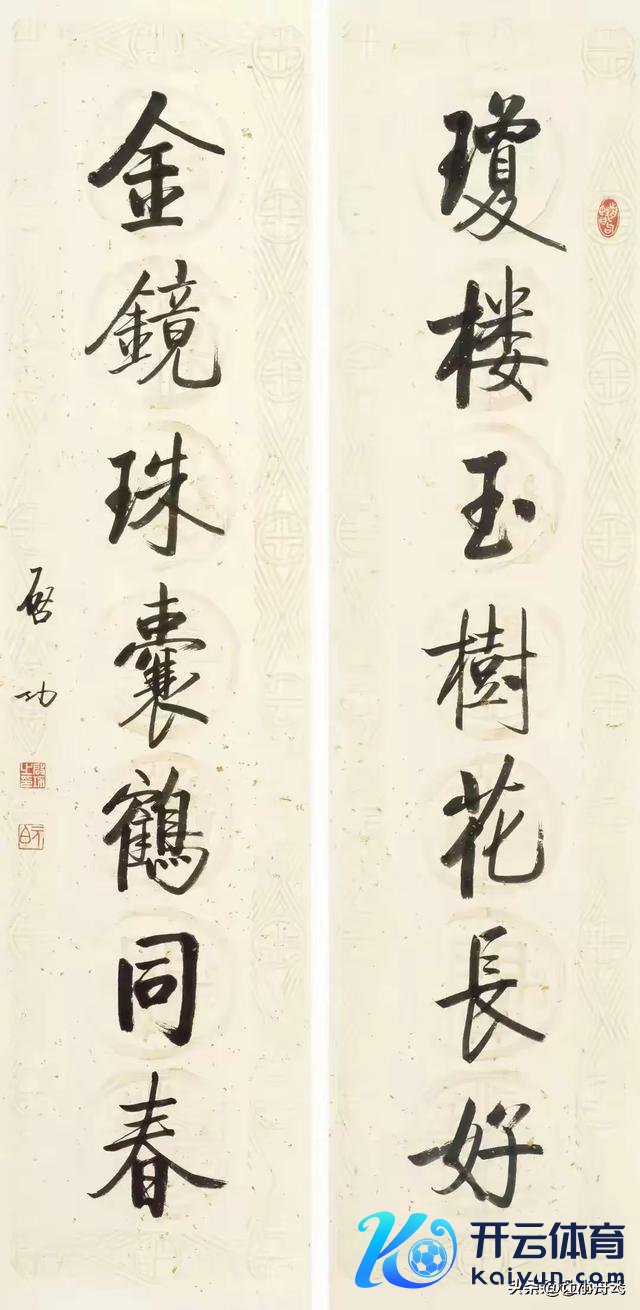 瓊楼玉樹花長好
金鏡珠囊鶴同春
啓功
开云体育
kaiyun.com